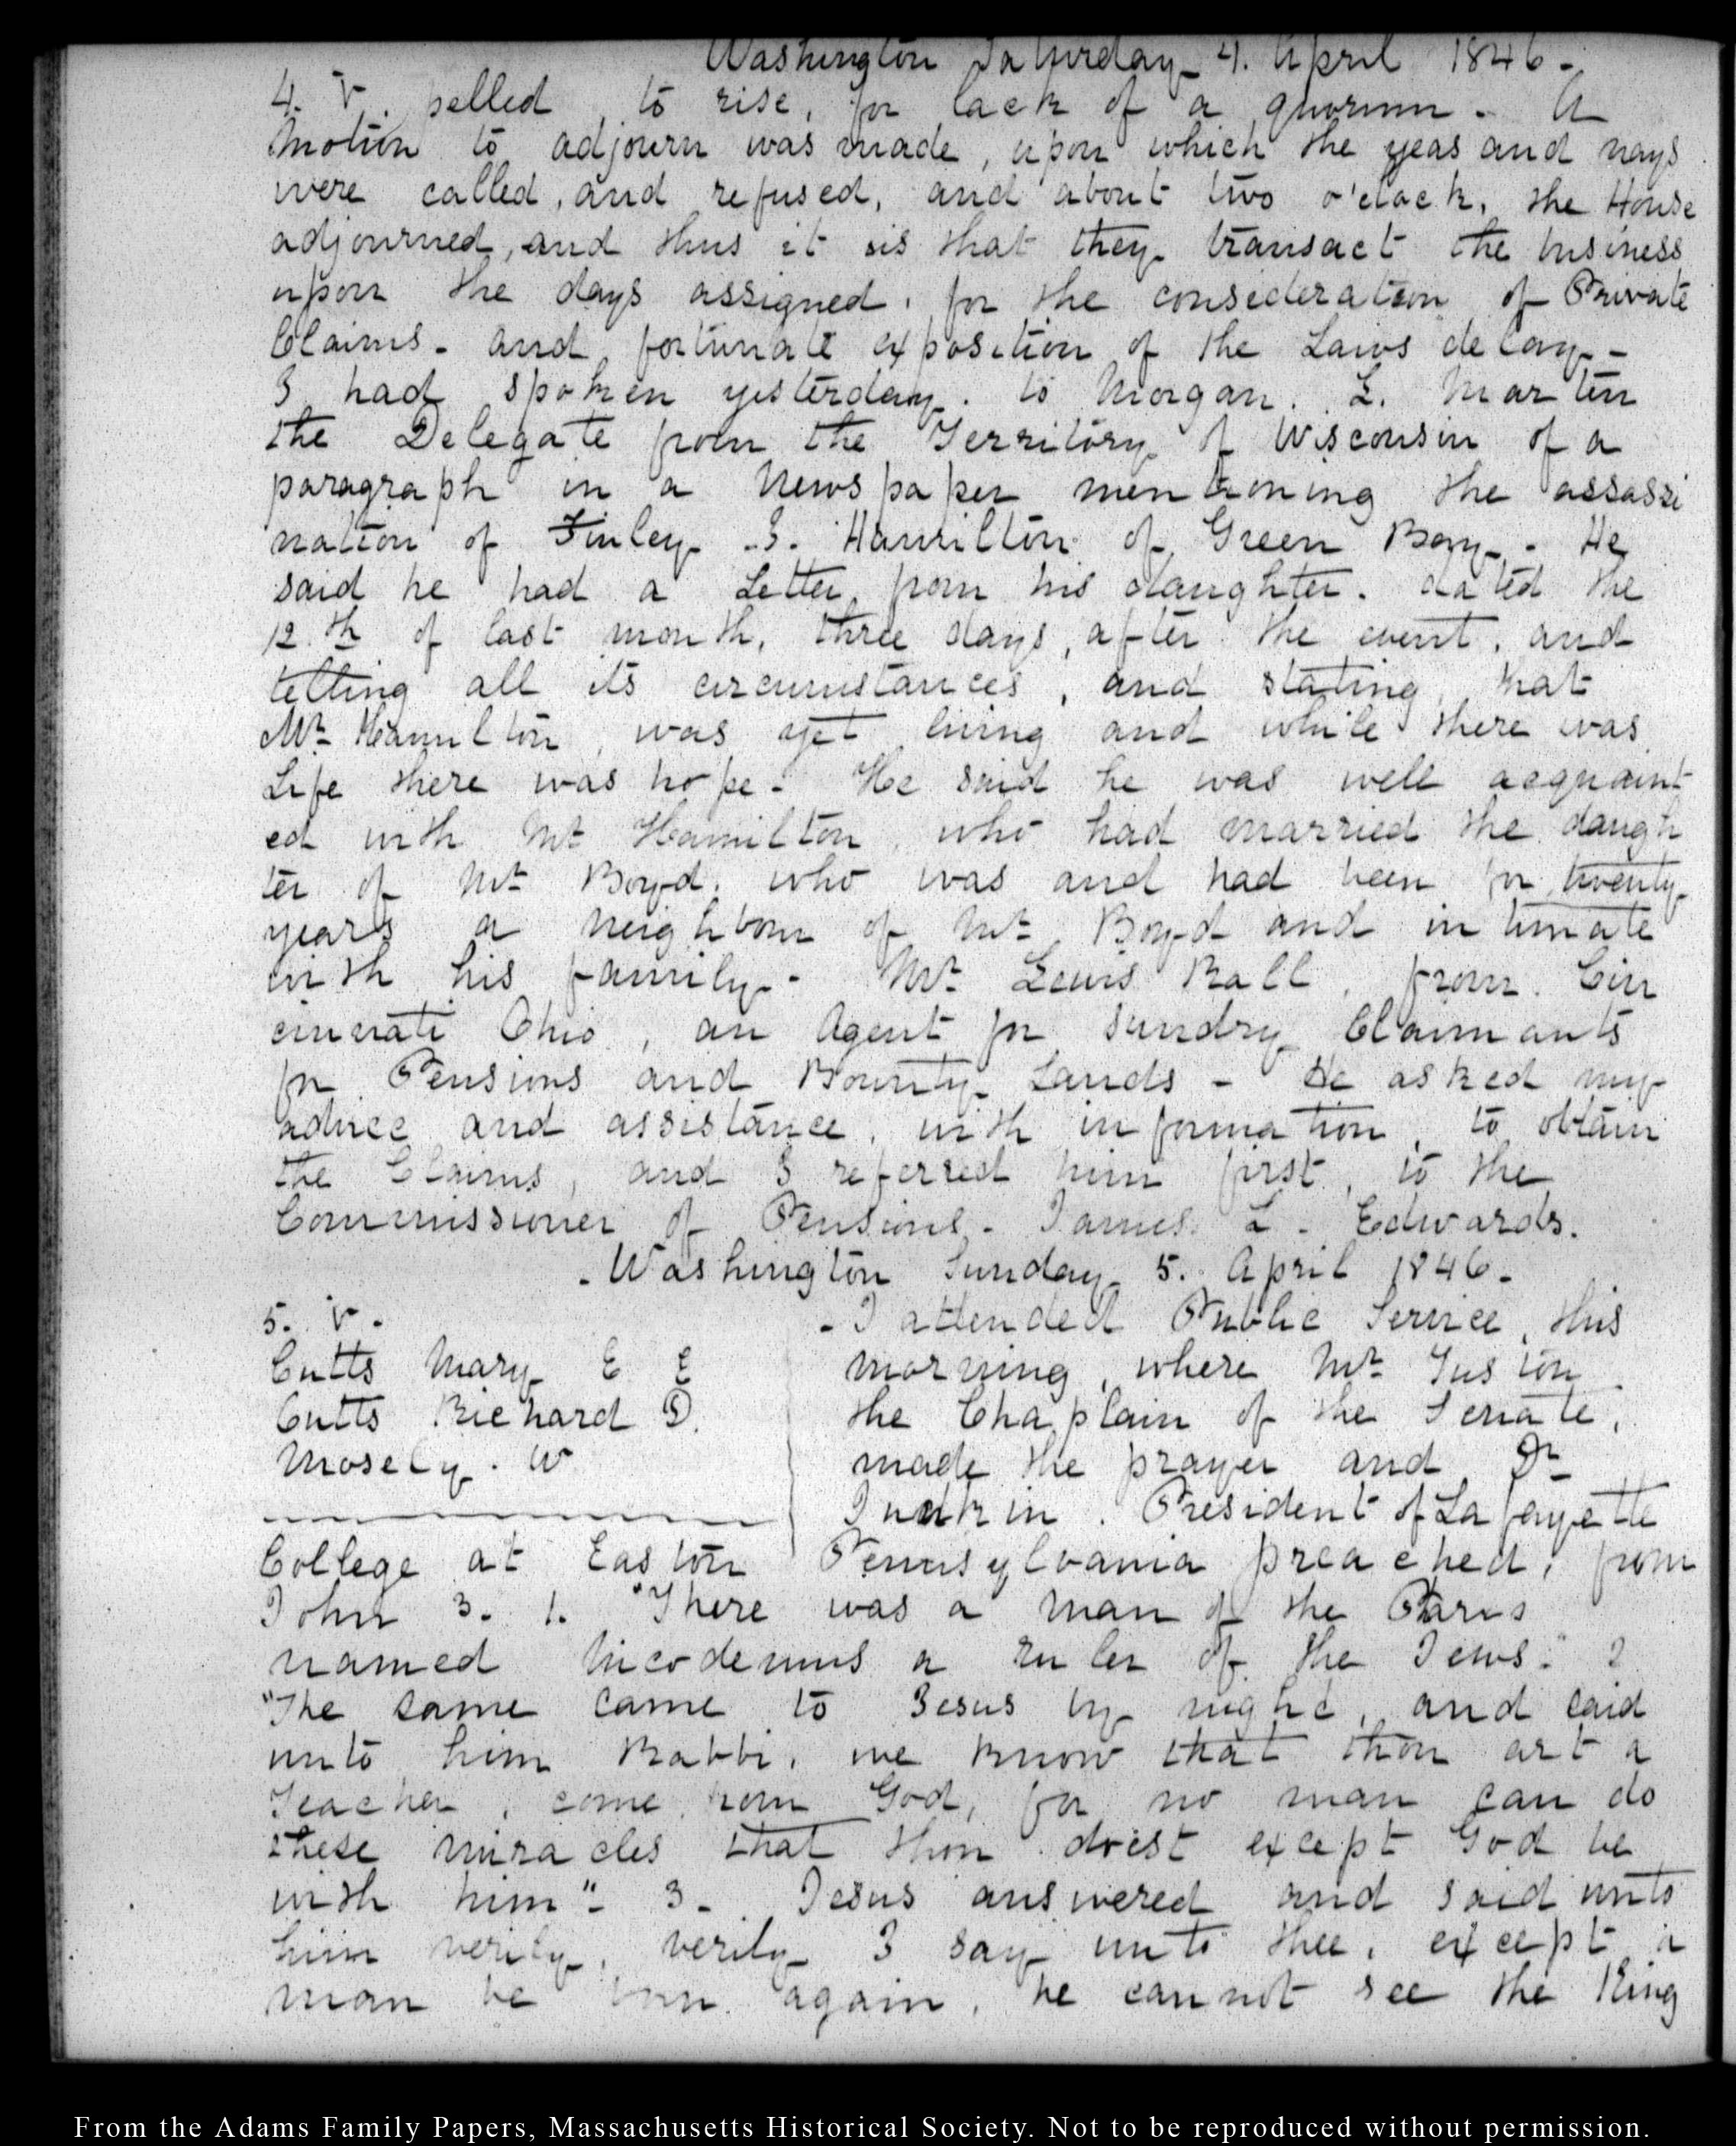 Washington Saturday 4. April 1846-
4. V. pelled, to rise, for lack of a quorum - A
motion to adjourn was made, upon which the yeas and nays
were called, and refused, and about two o'clock, the House
adjourned, and thus it is that they transact the business
upon the days assigned, for the consideration of Private
Claims - and fortunate exposition of the Laws delay -
I had spoken yesterday. to Morgan. L. Martin
the Delegate from the Territory of Wisconsin of a
paragraph in a Newspaper mentioning the assassi
nation of Finley S. Hamilton of Green Bay - He
said he had a Letter, from his daughter. dated the
12.th of last month, three days, after the event, and
telling all its circumstances, and stating, that
Mr. Hamilton, was yet living and while there was
Life there was hope - He said he was well acquaint
ed with Mr Hamilton, who had married the daugh
ter of Mr Boyd. who was and had been for twenty
years a neighbour of Mr Boyd and intimate
with his family - Mr Lewis Ball, from Cin
cinnati Ohio, an Agent for sundry Claimants
for Pensions and Bounty Lands - He asked my
advice and assistance, with information, to obtain
the Claims, and I referred him first, to the
Commissioner of Pensions - James L. Edwards.
- Washington Sunday 5. April 1846 -
5. V.
Cutts Mary E E
Cutts Richard D.
Mosely. W
- I attended Public Service, this
morning, where Mr Tuston
the Chaplain of the Senate,
made the prayer and Dr
Junkin. President of La fayette
College at Easton Pennsylvania preached, from
John 3. 1. "There was a man of the Paris
named Nicodemus a ruler of the Jews." 2
"The same came to Jesus by night, and said
unto him Rabbi, we know that thou art a
Teacher, come from God, for no man can do
these miracles that thou doest except God be
with him" - 3 - Jesus answered and said unto
him verily, verily I say unto thee, except a
man be born again, he cannot see the King
From the Adams Family Papers, Massachusetts Historical Society. Not to be reproduced without permission.